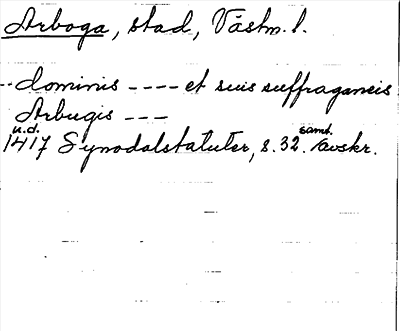 Arboga, stad, Västm. l.
-- dominis ---- et suis suffraganeis
Arbugis ---
u.d.
1417 Synodalstatuter, s. 32. samt. avskr.